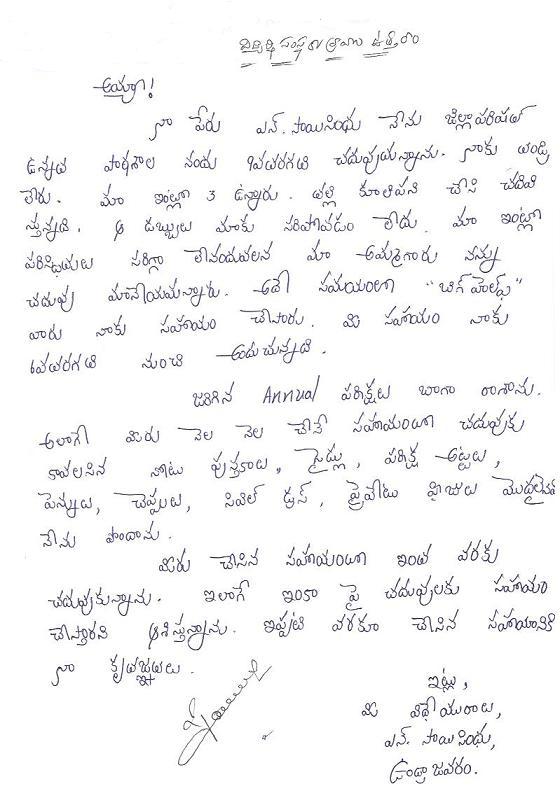 విద్యార్థి సంస్థకు వ్రాయు ఉత్తరం
అయ్యా!
నా పేరు ఎన్. సాయిసింధు నేను జిల్లాపరిషత్
ఉన్నత పాఠశాల నందు 9వతరగతి చదువుచున్నాను. నాకు తండ్రి
లేరు. మా ఇంట్లో 3 ఉన్నారు. తల్లి కూలిపని చేసి చదివి
స్తున్నది. ఆ డబ్బులు మాకు సరిపోవడం లేదు. మా ఇంట్లో
పరిస్థితులు సరిగ్గా లేనందువలన మా అమ్మగారు నన్ను
చదువు మానేయమన్నారు. అదే సమయంలో "బిగ్ హెల్ప్"
వారు నాకు సహాయం చేసారు. మీ సహాయం నాకు
6వతరగతి నుంచి అందుచున్నది.
జరిగిన Annual పరీక్షలు బాగా రాశాను.
అలాగే మీరు నెల నెల చేసే సహాయంతో చదువుకు
కావలసిన నోటు పుస్తకాలు, స్లైడ్లు, పరీక్ష అట్టలు,
పెన్నులు, చెప్పులు, సివిల్ డ్రస్, ప్రైవేటు ఫీజులు మొదలైనవి
నేను పొందాను.
మీరు చేసిన సహాయంతో ఇంత వరకు
చదువుకున్నాను. ఇలాగే ఇంకా పై చదువులకు సహాయం
చేస్తారని ఆశిస్తున్నాను. ఇప్పటి వరకూ చేసిన సహాయానికి
నా కృతజ్ఞతలు.
ఇట్లు,
మీ విధేయురాలు,
ఎన్. సాయిసింధు,
ఉండ్రాజవరం.